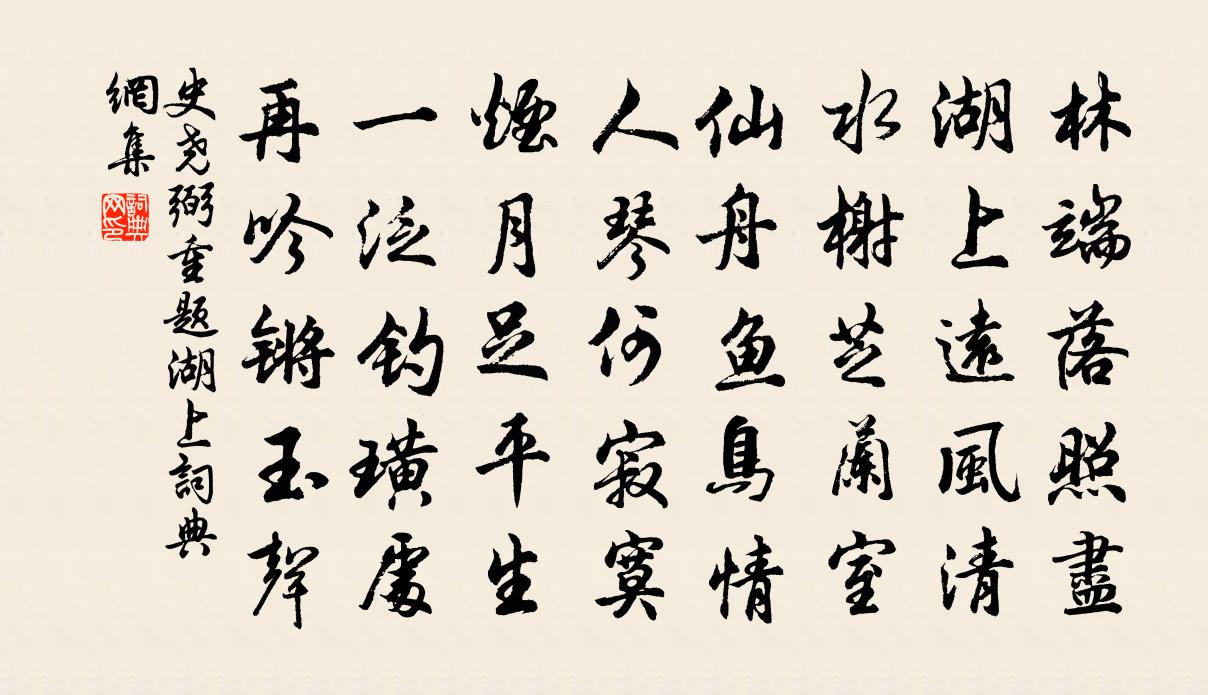 林端落照盡
湖上遠風清
水榭芝蘭室
仙舟魚鳥情
人琴何寂寞
煙月足平生
一泛釣璜處
再吟鏘玉聲
史堯弼重題湖上詞典
網集
詞典网印